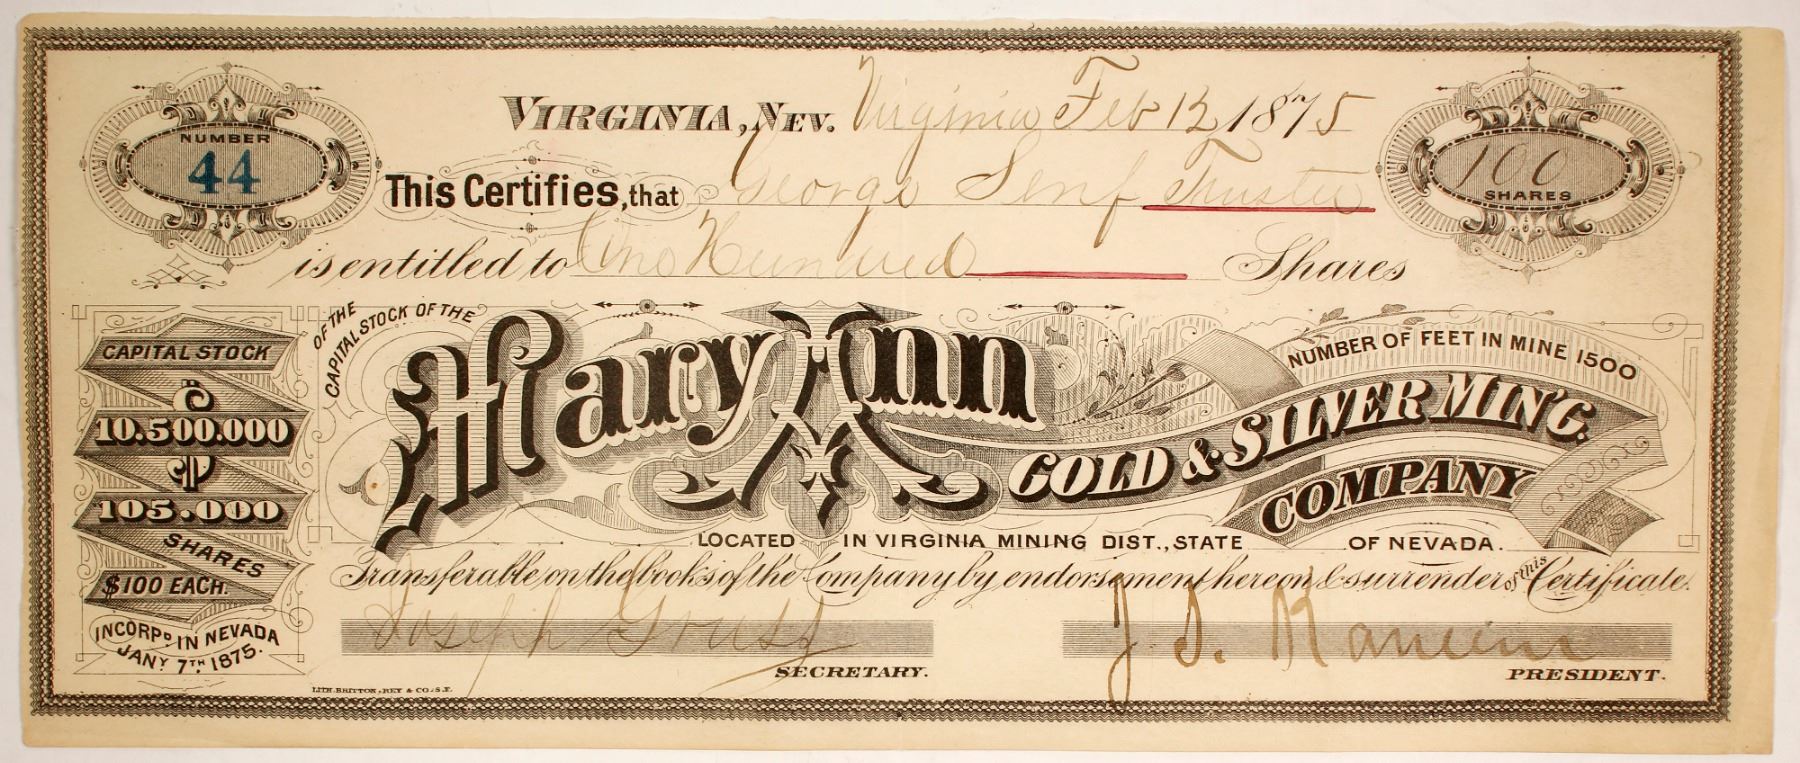 VIRGINIA, NEV. Virginia Feb 12 1875
NUMBER
44
This Certifies, that George Senf Trustee
100
SHARES
is entitled to One Hundred Shares
OF THE
CAPITAL STOCK OF THE
Mary Ann
NUMBER OF FEET IN MINE 1500
GOLD & SILVER MIN'G.
COMPANY
LOCATED IN VIRGINIA MINING DIST., STATE OF NEVADA.
CAPITAL STOCK
$
10.500.000
105.000
SHARES
$100 EACH.
INCORPD. IN NEVADA
JANY 7TH 1875.
Transferable on the books of the Company by endorsement hereon & surrender of this Certificate.
Joseph
SECRETARY.
J. S.
PRESIDENT.
LITH. BRITTON, REY & CO. S.F.